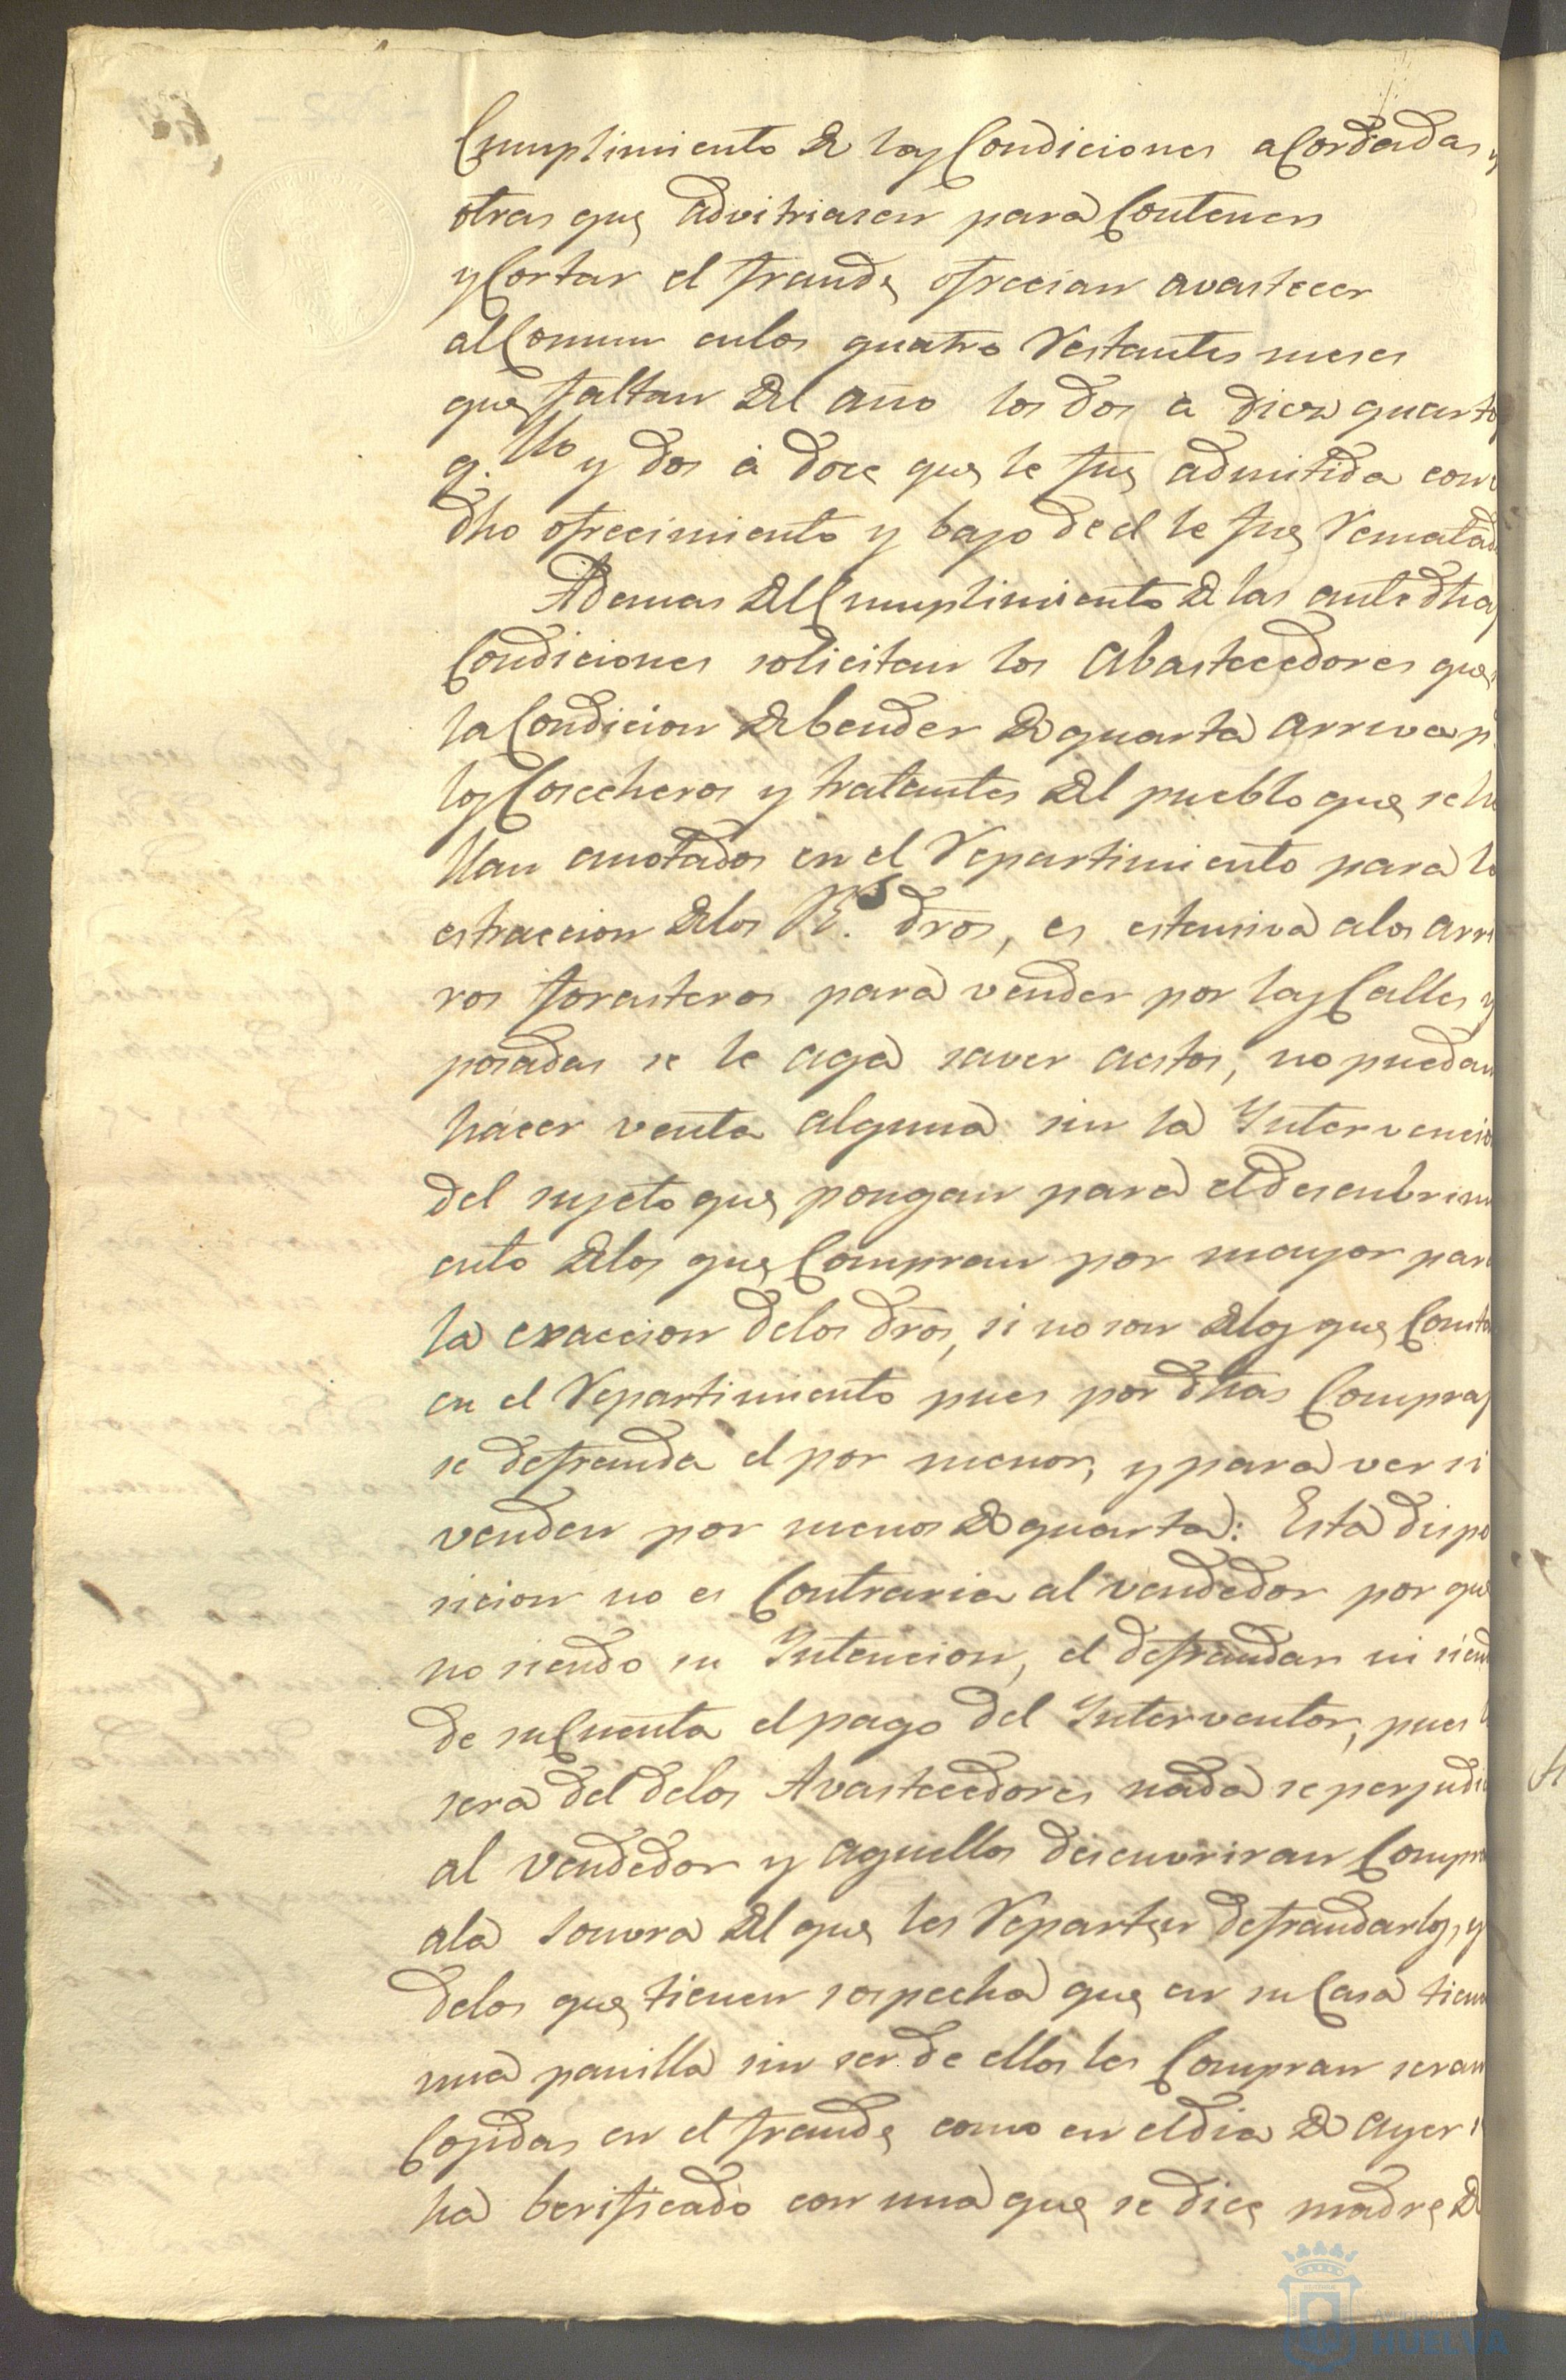 Cumplimiento de las Condiciones acordadas y
otras que advitriasen para Contener
y Cortar el fraude ofrecian avastecer
al Comun en los quatro restantes meses
que faltan del año los dos a diez quartos
q.llo y dos à doce que le fue admitida con
dho ofrecimiento y bajo de el le fue rematad
Ademas del Cumplimiento de las antedhas
Condiciones solicitan los Abastecedores que
la Condicion de bender de quarta arriva p.
los Cosecheros y tratantes del pueblo que se ha
llan anotados en el repartimiento para la
estraccion de los R.s dros, es estensiva a los arri
ros forasteros para vender por las Calles y
posadas se le aga saver aestos, no puedan
hacer venta alguna sin la Intervencio
del sujeto que pongan para el descubrim
ento de los que Compran por mayor para
la exaccion de los dros, si no son de los que Consta
en el repartimiento pues por dhas Compras
se defrauda el por menor, y para ver si
venden por menos de quarta: Esta dispo
sicion no es Contraria al vendedor por que
no siendo su Intencion, el defraudar ni siend
de su Cuenta el pago del Interventor, pues
sera del de los Avastecedores nada se perjudi
al vendedor y aquellos descuvriran Compra
a la sonvra del que les reparten defraudarlos, y
de los que tienen sospecha que en su Casa tienen
una panilla sin ser de ellos les Compran seran
Cojidas en el fraude como en el dia de ayer s
ha berificado con una que se dice madre de
HUELVA